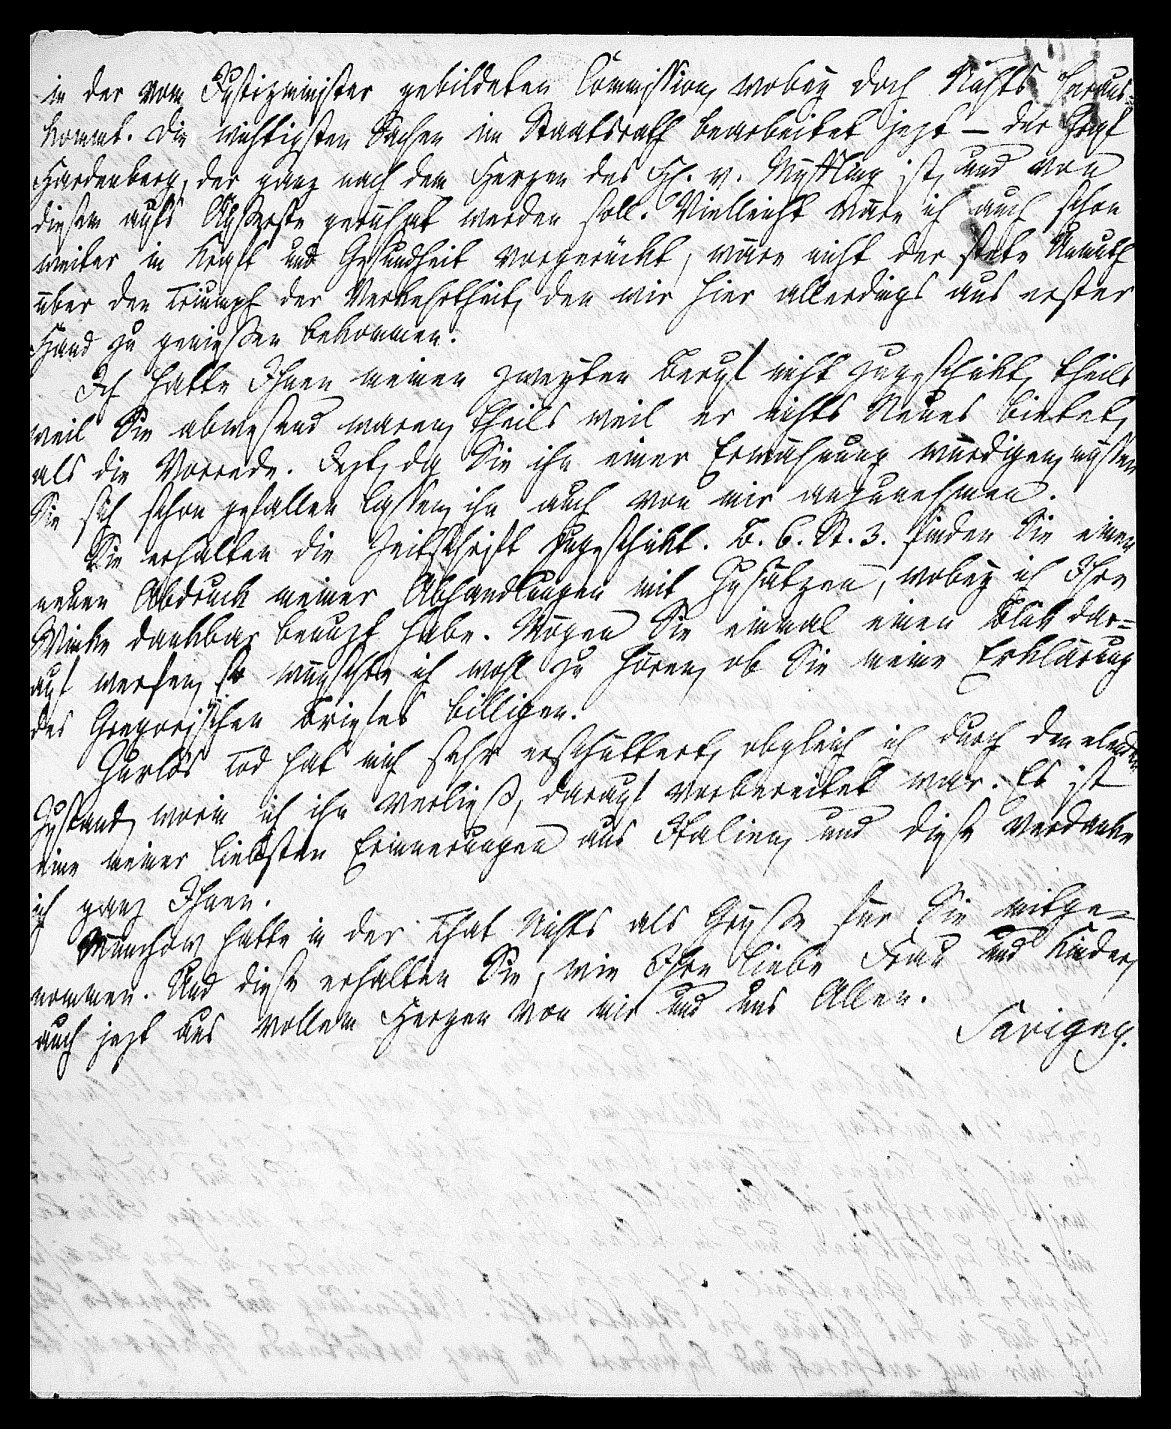 in der vom Justizminister gebildeten Commission, wobey doch Nichts heraus-
kommt. Die wichtigsten Sachen im Staatsrath bearbeitet jezt – der Graf
Hardenberg, der ganz nach dem Herzen des H. v. Müffling ist, und von
diesem aufs Äußerste gerühmt werden soll. Vielleicht wäre ich auch schon
weiter in Kraft und Gesundheit vorgerückt, wäre nicht der stete Unmuth
über den Triumph der Verkehrtheit, den wir hier allerdings aus erster
Hand zu genießen bekommen.
Ich hatte Ihnen meinen zweyten Beruf nicht zugeschickt, theils
weil Sie abwesend waren, theils weil er nichts Neues bietet,
als die Vorrede. Jezt, da Sie ihn einer Erwähnung würdigen, müssen
Sie sich schon gefallen lassen, ihn auch von mir anzunehmen.
Sie erhalten die Zeitschrift zugeschickt. B. 6. St. 3. finden Sie einen
neuen Abdruck meiner Abhandlungen mit Zusätzen, wobey ich Ihre
Winke dankbar benuzt habe. Mögen Sie einmal einen Blick dar-
auf werfen, so wünschte ich wohl zu hören, ob Sie meine Erklärung
des Gregorischen Briefes billigen.
Hurlos Tod hat mich sehr erschüttert, obgleich ich durch den elenden
Zustand, worin ich ihn verließ, darauf vorbereitet war. Es ist
eine meiner liebsten Erinnerungen aus Italien, und diese verdanke
ich ganz Ihnen.
Münchow hatte in der That Nichts als Grüße für Sie mitge-
nommen. Und diese erhalten Sie, wie Ihre liebe Frau und Kinder,
auch jezt aus vollem Herzen von mir und uns Allen.
Savigny.